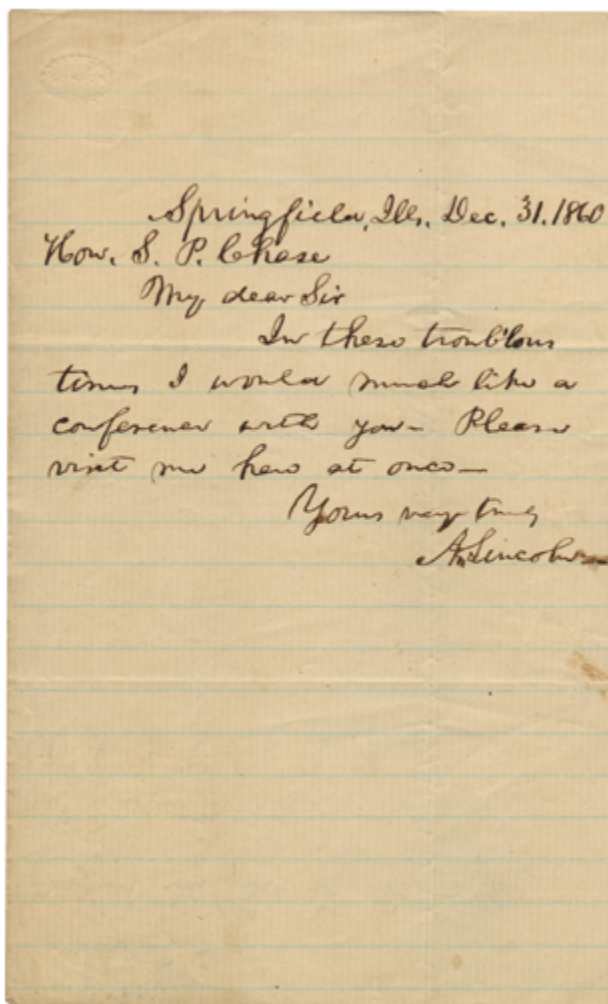 Springfield, Ills. Dec. 31. 1860
Hon. S. P. Chase
My dear Sir
In these troublous
times I would much like a
conference with you— Please
visit me here at once—
Yours very truly
A. Lincoln—